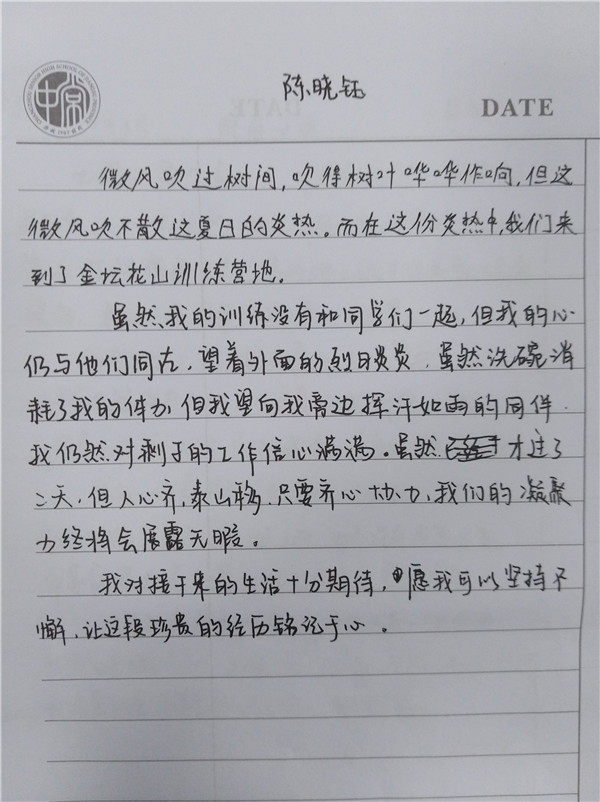 陈晓钰
DATE
微风吹过树间,吹得树叶哗哗作响,但这
微风吹不散这夏日的炎热。而在这份炎热中,我们来
到了金坛花山训练营地。
虽然我的训练没有和同学们一起,但我的心
仍与他们同在,望着外面的烈日炎炎,虽然洗碗消
耗了我的体力,但我望向我旁边挥汗如雨的同伴.
我仍然对剩于的工作信心满满。虽然才过了
二天,但人心齐,泰山移,只要齐心协力,我们的凝聚
力终将会展露无暇。
我对接下来的生活十分期待,愿我可以坚持不
懈,让这段珍贵的经历铭记于心。